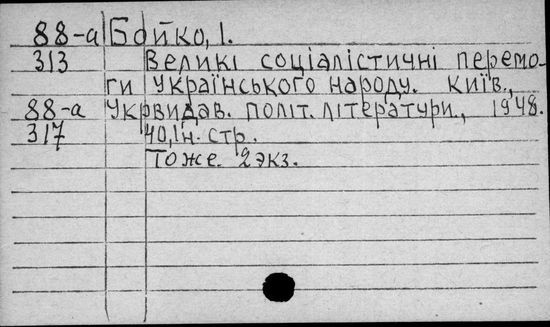 88-а Бойко, І.
313 Великі соціалістичні перемо-
ги українського народу. Київ.,
88-а Укрвидав. політ. літератури., 1948.
317 40, Ін. стр.
Тоже 2 экз.